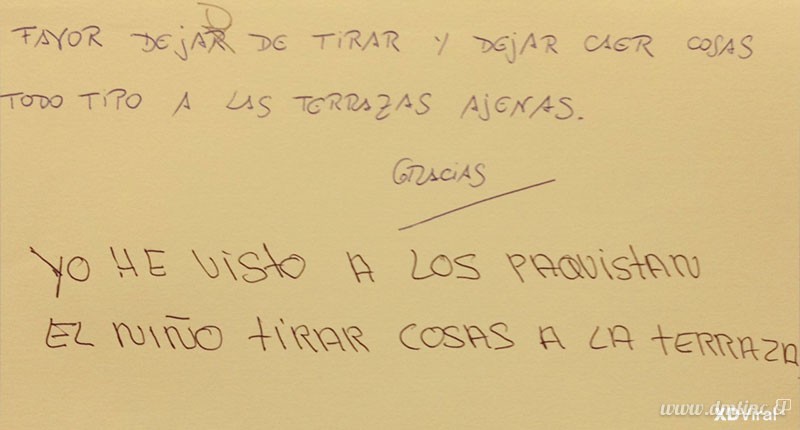 FAVOR DEJAD DE TIRAR Y DEJAR CAER COSAS
TODO TIPO A LAS TERRAZAS AJENAS.
GRACIAS
YO HE VISTO A LOS PAQUISTAN
EL NIÑO TIRAR COSAS A LA TERRAZA
XDViral